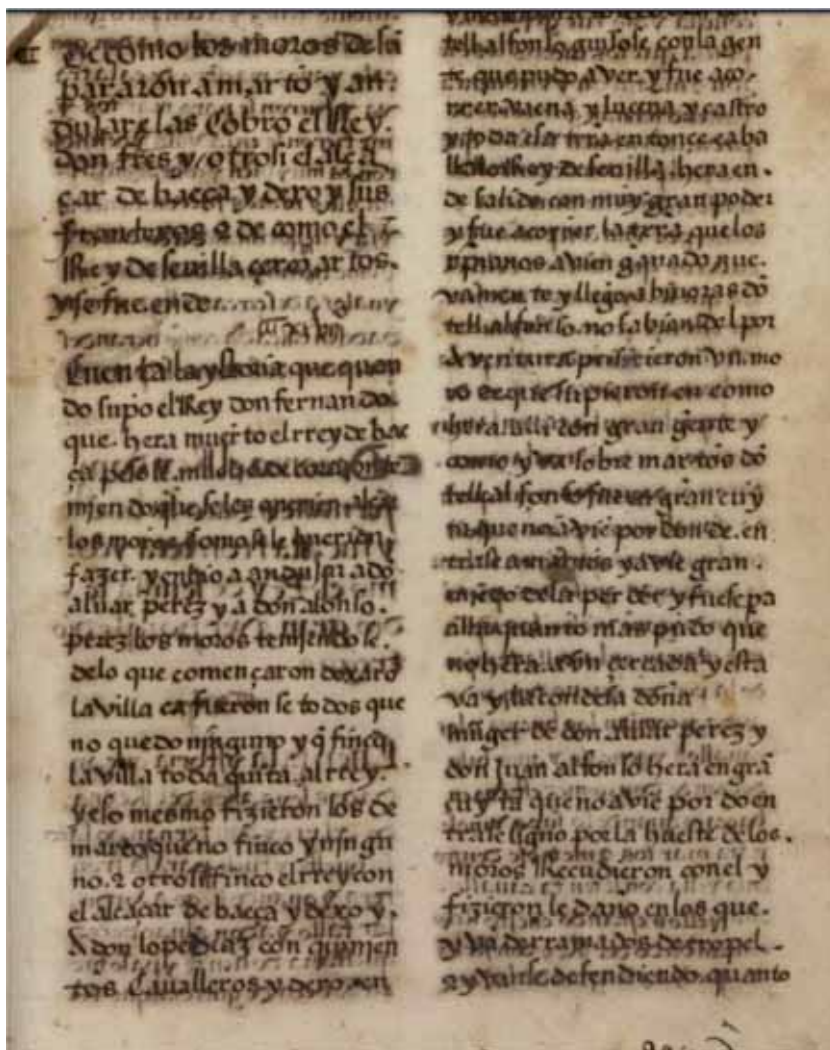 de como los moros desã
pararon a marto y an
dujar e las cobro el Rey
don fres y otrosi el alca
çar de baeça y dexo y sus
fronteros 2 de como el
Rey de sevilla çerco artos.
y se fue ende
Cuenta la ystoria que quan
do supo el Rey don fernando
que hera muerto el rrey de bae
ça
mien do que se les
los moros como se le
fazer. y enbio a andujar a dõ
aluar perez y a don alonso.
perez los moros temjendo se.
delo que començaron dexarõ
la villa ca fueron se todos que
no quedo njnguno y q̃ finco
la villa toda quita al rrey.
y eso mesmo fizieron los de
martos que no finco y njngu
no. 2 otrosi finco el rrey con
el alcaçar de baeça y dexo y.
A don lope diaz con qujnien
tos Cavalleros y dexo en
tell alfonso guisose con la gen
te que pudo aver. y fue aco
rrer vaena y luçena y castro
y toda esa trrã en tonçe
Rey de sevilla. hera en.
de salido con muy gran poder
y fue acorrer la trrã que los
xpianos avien ganado nue.
va men te y llego a
tell alfonso. no sabian del por
A ventura prisieron vn mo
ro de que supieron en como
hera alli con gran gente y
como yva sobre martos dõ
tell alfonso fue en gran cuy
ta que no avie por don de. en
trase a martos y avie gran.
mjedo dela perder y fuese pa
alla quanto mas pudo que
no hera. avn çercada y esta
va y la condesa doña
muger de don aluar perez y
don Juan alfonso hera en grã
cuyta que no avie por do en
trase por la hueste de los.
moros Recudieron con el y
fizieron le daño en los que.
yva derramados de tropel
2 yvanse defendiendo. quanto